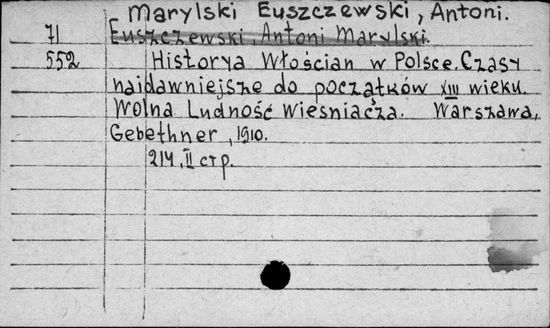 Marylski Euszczewski, Antoni.
71 Euszczewski, Antoni Marylski.
552 Historya Włościan w Polsce. Czasy
najdawniejsze do początków XIII wieku.
Wolna Ludność Wieśniacza. Warszawa,
Gebethner, 1910.
214, II стр.